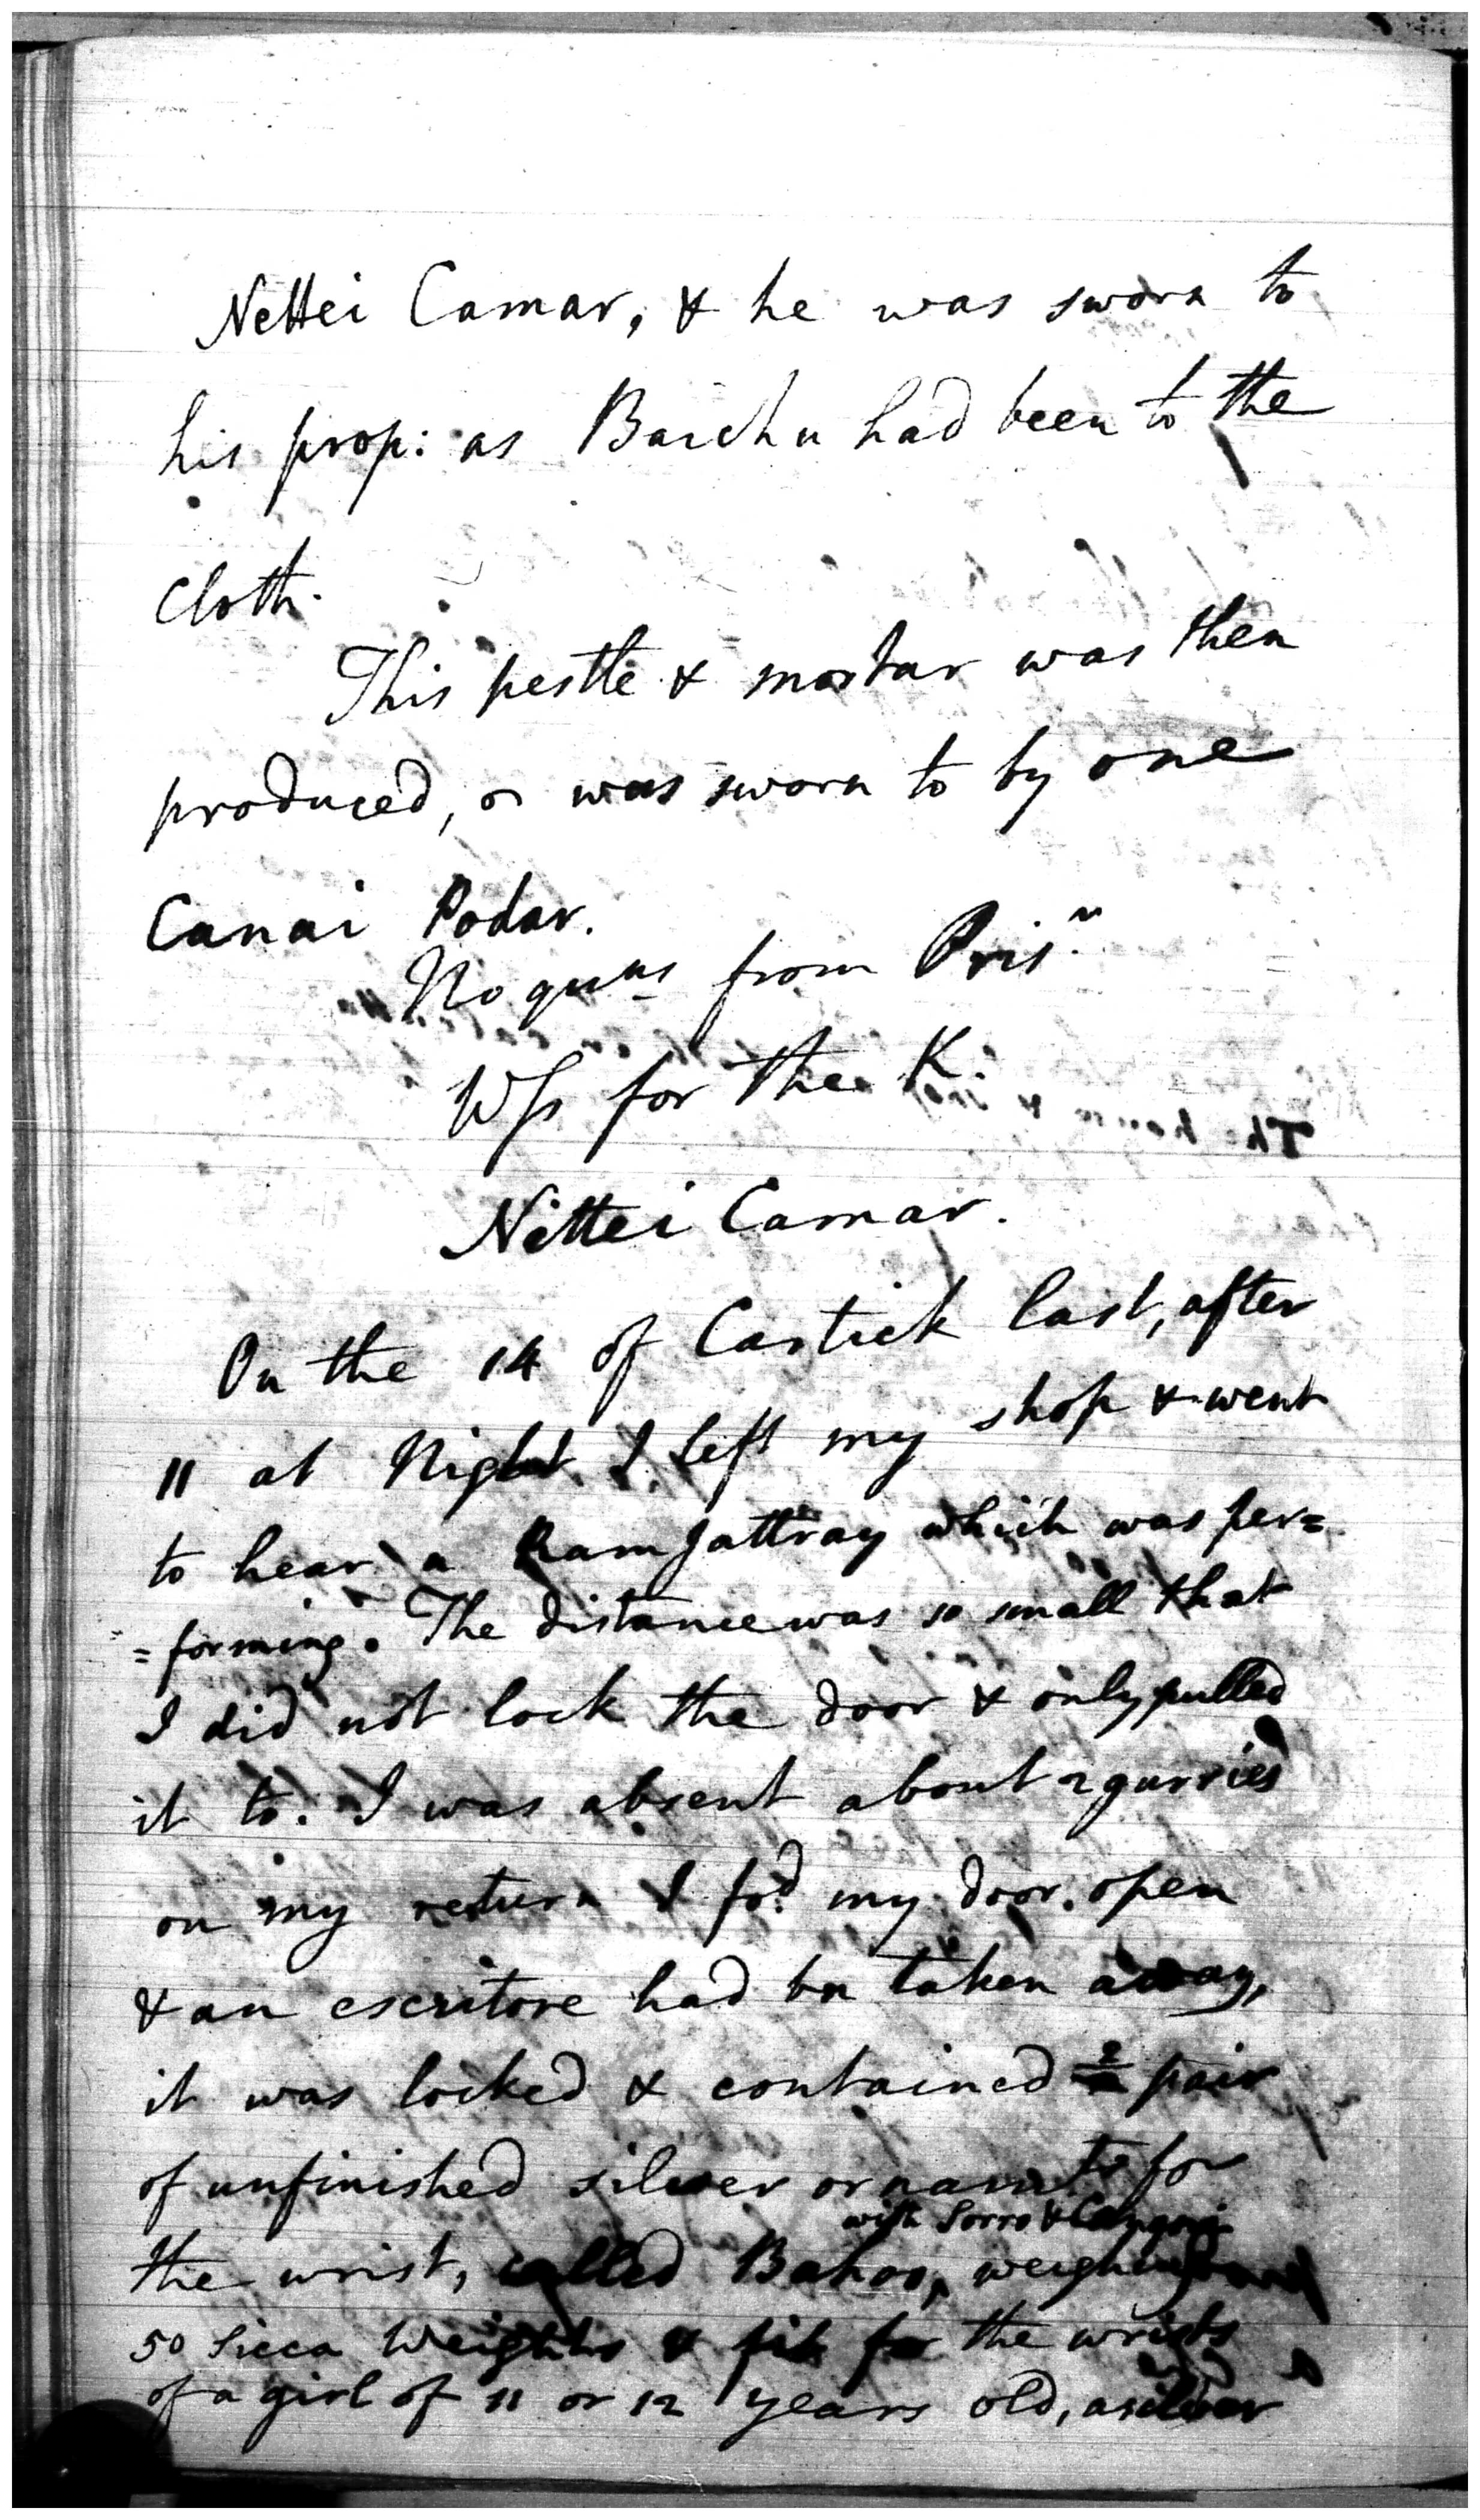 Nettei Camar, & he was sworn to
his prop: as Baichu had been to the
cloth.
This pestle & mortar was then
produced, & was sworn to by one
Canai Podar.
No quns from Prisn.
Wss for the K.
Nettei Camar.
On the 14 of Cartick last, after
11 at Night I left my shop & went
to hear a Ram Jattray which was per=
=forming. The distance was so small that
I did not lock the door & only pulled
it to. I was absent about 2 gurries
on my return I fod. my door open
& an escritore had bn taken away,
it was locked & contained 2 pair
of unfinished silver ornamts for
with Sorro &
the wrist, called Bahoo, weighing
50 Sicca Weights & fit for the wrists
of a girl of 11 or 12 years old, a silver